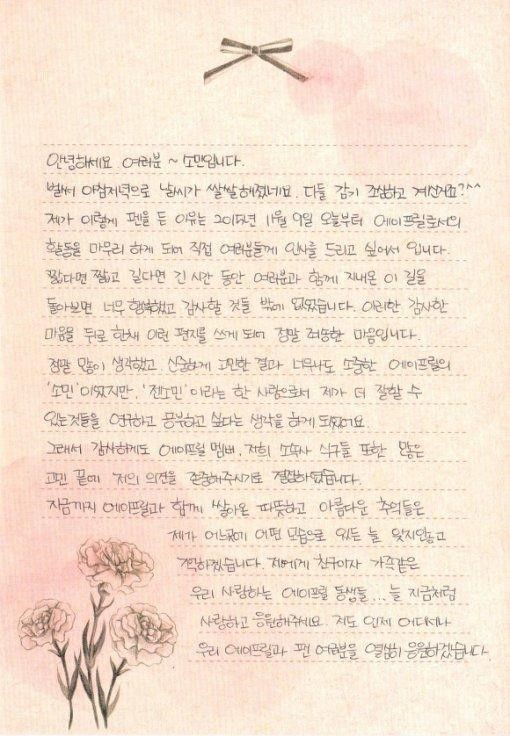 안녕하세요 여러분 ~ 소민입니다.
벌써 아침저녁으로 날씨가 쌀쌀해졌네요. 다들 감기 조심하고 계신거죠?^^
제가 이렇게 펜을 든 이유는 2015년 11월 9일 오늘부터 에이프릴로서의
활동을 마무리 하게 되어 직접 여러분들께 인사를 드리고 싶어서 입니다.
짧다면 짧고 길다면 긴 시간 동안 여러분과 함께 지내온 이 길을
돌아보면 너무 행복했고 감사할 것들 밖에 없었습니다. 이러한 감사한
마음을 뒤로 한채 이런 편지를 쓰게 되어 정말 죄송한 마음입니다.
정말 많이 생각했고 신중하게 고민한 결과 너무나도 소중한 에이프릴의
'소민'이였지만, '전소민'이라는 한 사람으로서 제가 더 잘할 수
있는것들을 연구하고 공부하고 싶다는 생각을 하게 되었어요.
그래서 감사하게도 에이프릴 멤버, 저희 소속사 식구들 또한 많은
고민 끝에 저의 의견을 존중해주시기로 결정하였습니다.
지금까지 에이프릴과 함께 쌓아온 따뜻하고 아름다운 추억들은
제가 어느곳에 어떤 모습으로 있든 늘 잊지않고
기억하겠습니다. 저에게 친구이자 가족같은
우리 사랑하는 에이프릴 동생들... 늘 지금처럼
사랑하고 응원해주세요. 저도 언제 어디서나
우리 에이프릴과 팬 여러분을 열심히 응원하겠습니다.